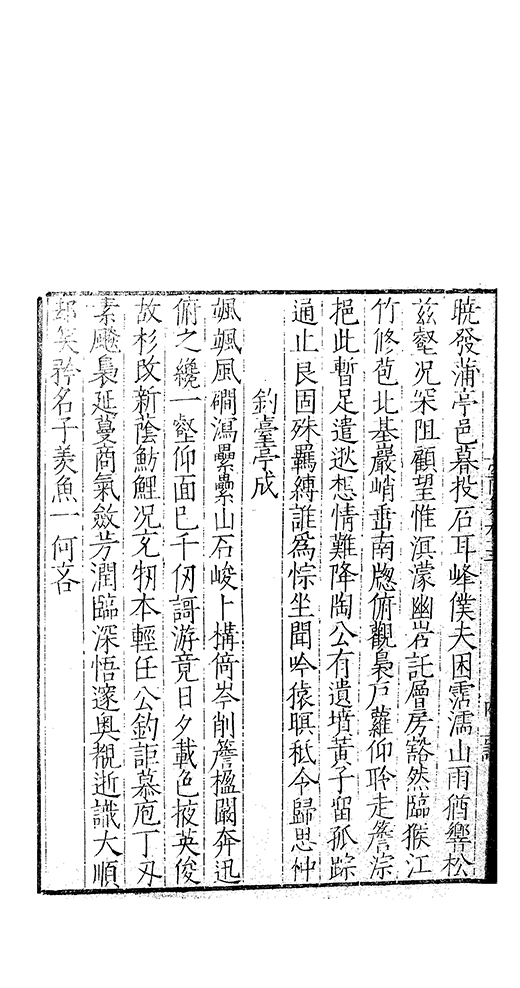 曉發蒲亭邑暮投石耳峰僕夫困霑濡山雨猶響松
茲壑况深阻顧望惟溟濛幽岩託層房豁然臨猴江
竹修苞北基巖峭垂南牕俯觀梟戶蘿仰聆走簷淙
挹此暫足遣逖想情難降陶公有遺墳黃子留孤踪
通止良固殊羈縛誰為悰坐聞吟猿瞑秪令歸思忡
釣臺亭成
颯颯風磵瀉纍纍山石峻上構倚岑削簷楹闞奔迅
俯之纔一壑仰面已千仞謌游竟日夕載色掖英俊
故杉改新蔭魴鯉况充牣本輕任公釣詎慕庖丁刃
素飈裊延蔓商氣斂芳潤臨深悟邃奥覩逝識大順
鄙矣矜名子羨魚一何吝